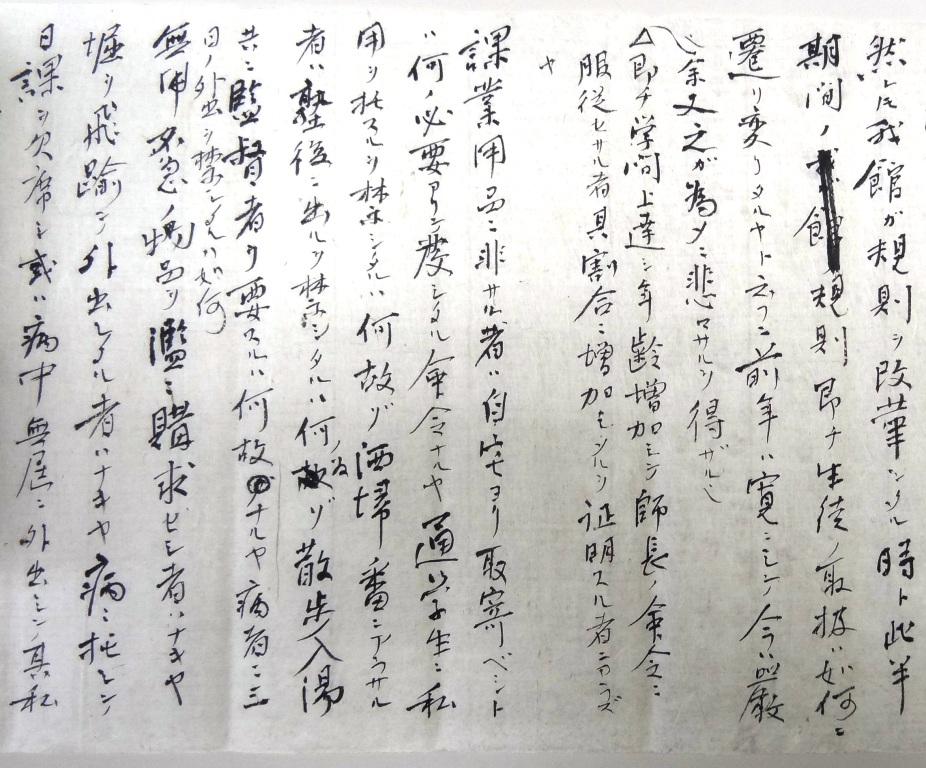 然レ𪜈我館ガ規則ヲ改革シタル時ト此半
期間ノ規則即チ生徒ノ取扱ハ如何ニ
遷リ変リタルヤト云フニ前年ハ寛ニシテ今ハ厳
余又之ガ為メニ悲マサルヲ得ザル也
即チ学問上達シ年齢増加シテ師長ノ命令ニ
服従セサル者其割合ニ増加セシメタルヲ証明スル者ニアラズ
ヤ
課業用品ニ非サル者ハ自宅ヨリ取寄ベシト
ハ何ノ必要アリテ発シタル命令ナルヤ通学生ニ私
用ヲ托スルヲ禁シタルハ何故ゾ洒掃番ニアラサル
者ハ塾後ニ出ルヲ禁シタルハ何ノ為ゾ散歩入湯
共ニ監督者ヲ要スルハ何故ナルヤ病者ニ三
日ノ外出ヲ禁シタルハ如何
無用不急ノ物品ヲ濫ニ購求セシ者ハナキヤ
堀リ飛踰シテ外出シタル者ハナキヤ病ニ托シテ
日課ヲ欠席シ或ハ病中無届ニ外出シテ其私